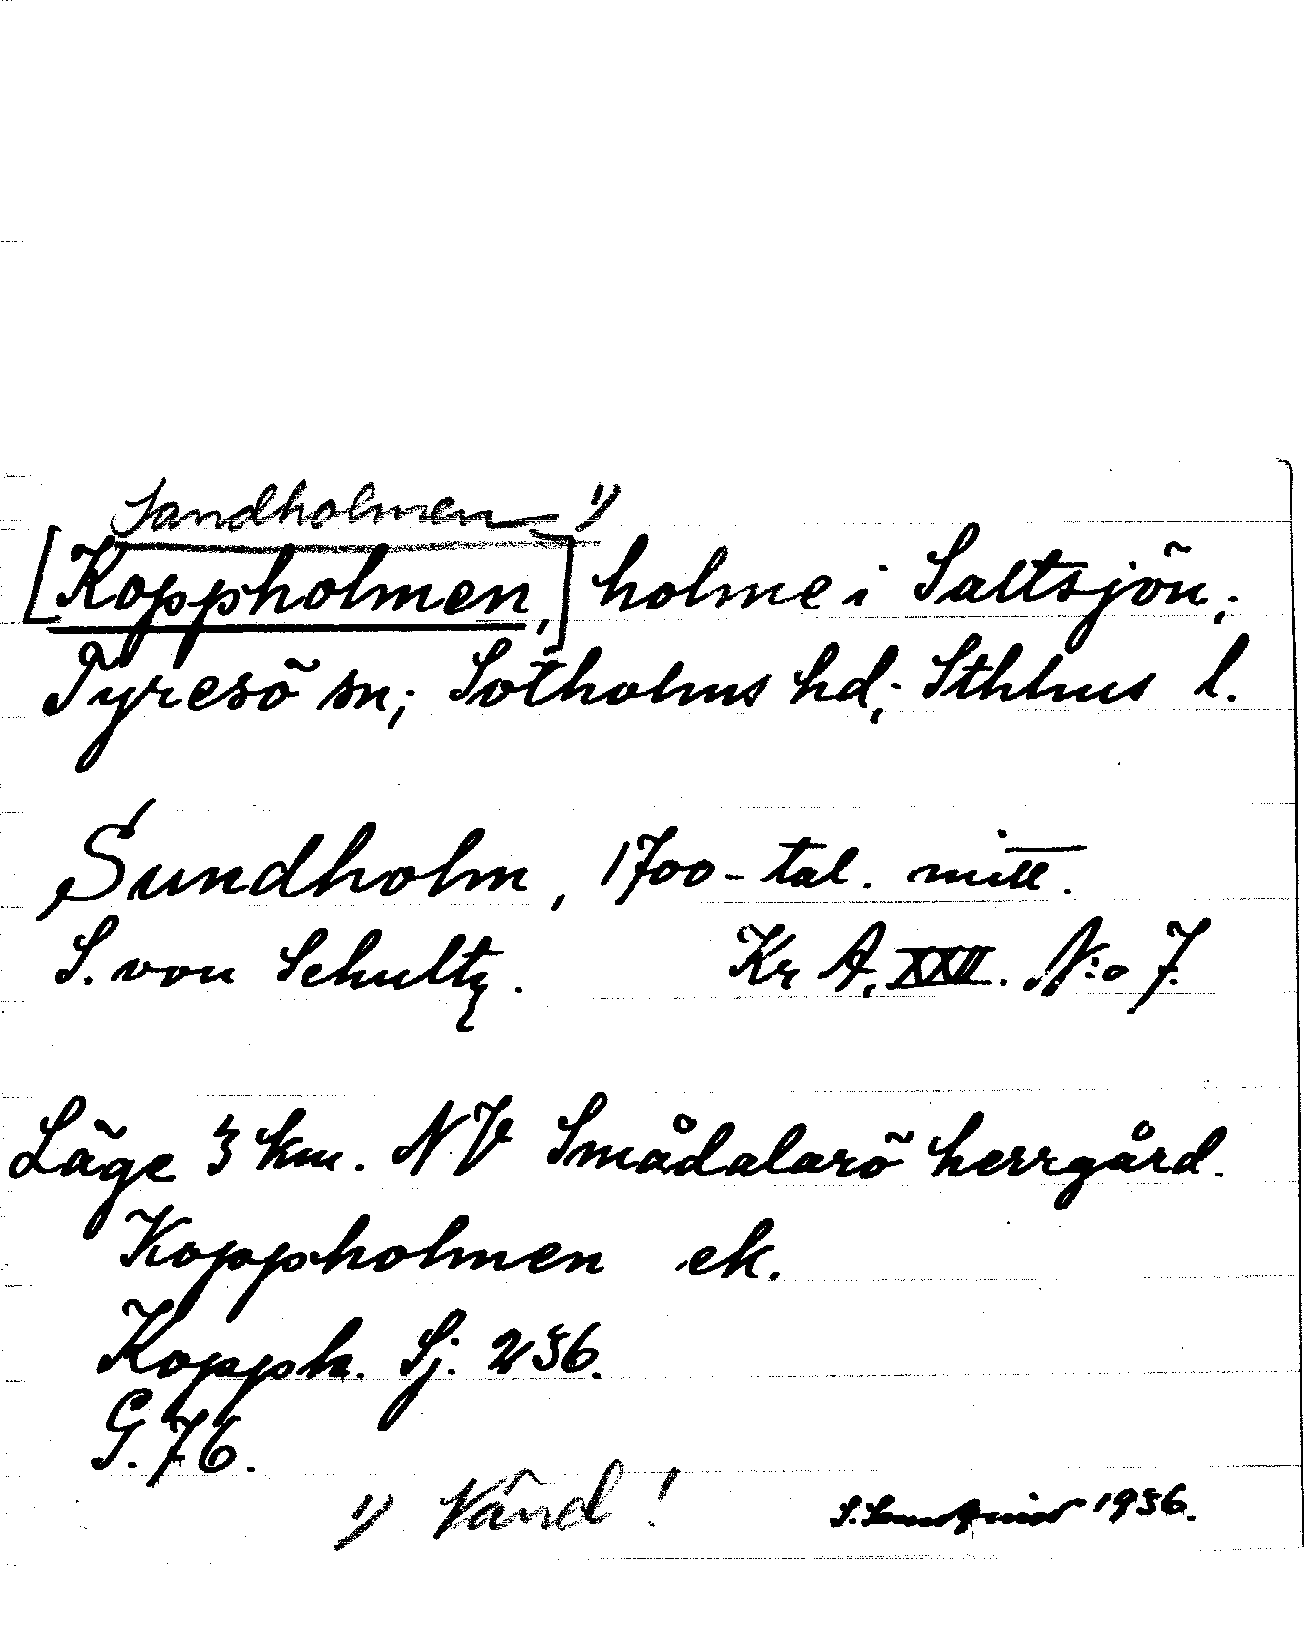 Sandholmen 1)
[Koppholmen,] holme i Saltsjön;
Tyresö sn; Sotholms hd; Sthlms l.
Sundholm, 1700-tal. mitt.
S. von Schultz. Kr A, XXII. N:o 7.
Läge 3 km. NV Smådalarö herrgård.
Koppholmen ek.
Kopph. Sj. 236.
G. 76.
1) Vänd!
S. 1936.